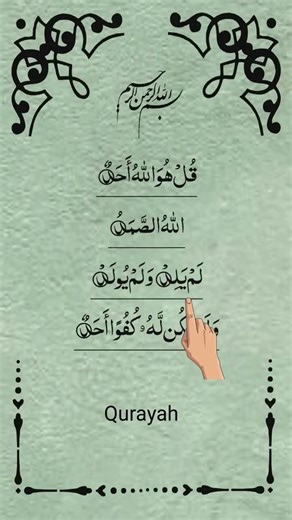 بسم الله الرحمن الرحيم
قُلْ هُوَ اللهُ أَحَدٌ
اللهُ الصَّمَدُ
لَمْ يَلِدْ وَلَمْ يُولَدْ
لَّهُ كُفُوًا أَحَدٌ
Qurayah